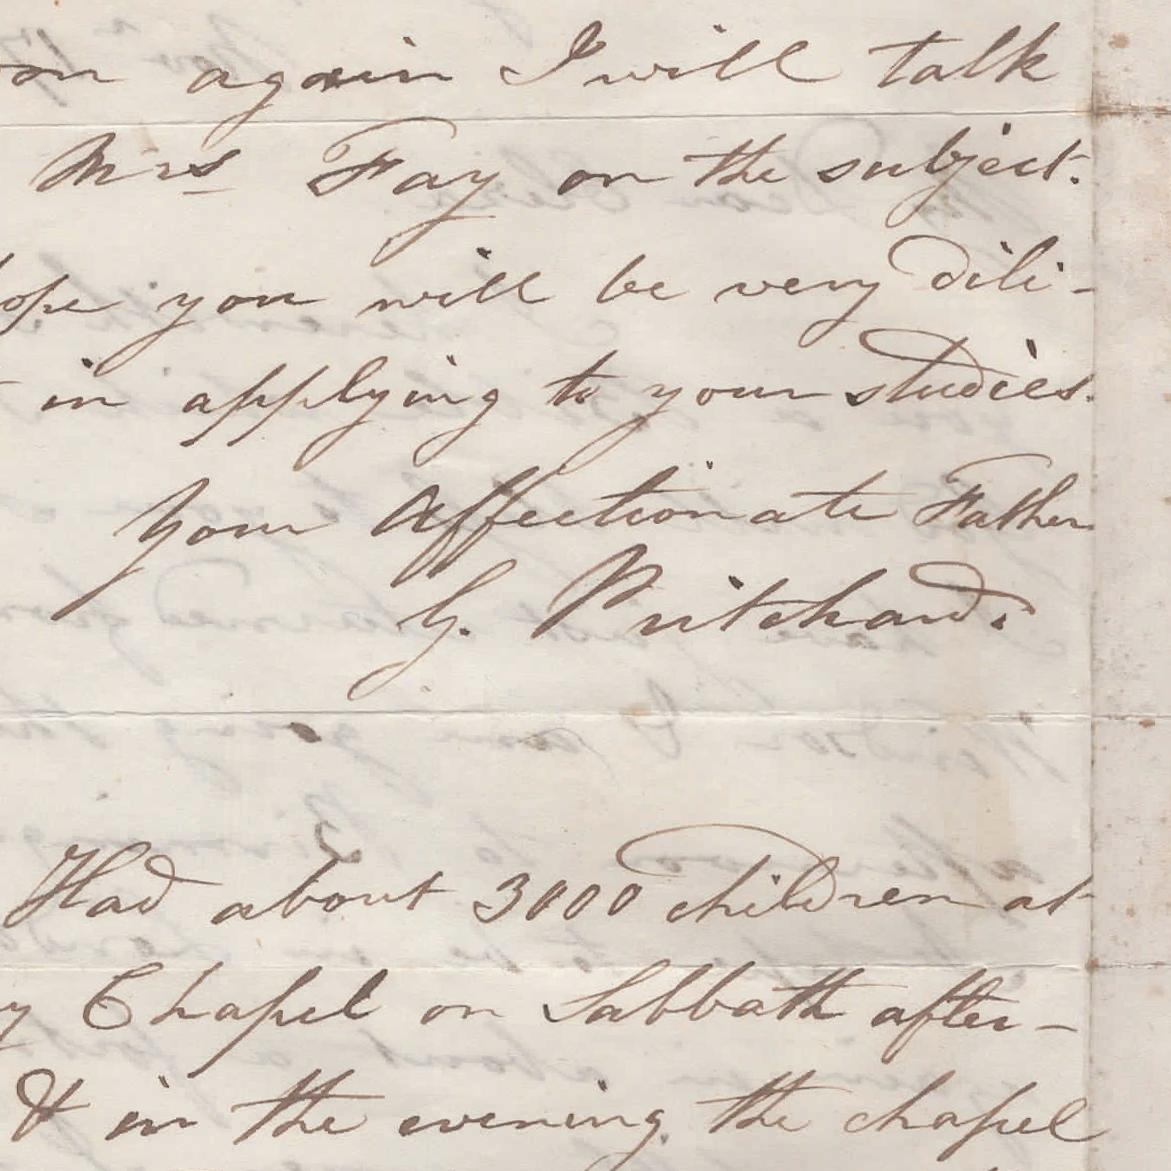 again I will talk
Mrs Fay on the subject.
you will be very dili-
in applying to your studies.
Your Affectionate Father
G. Pritchard.
Had about 3000 children at
Chapel on Sabbath after-
& in the evening the chapel